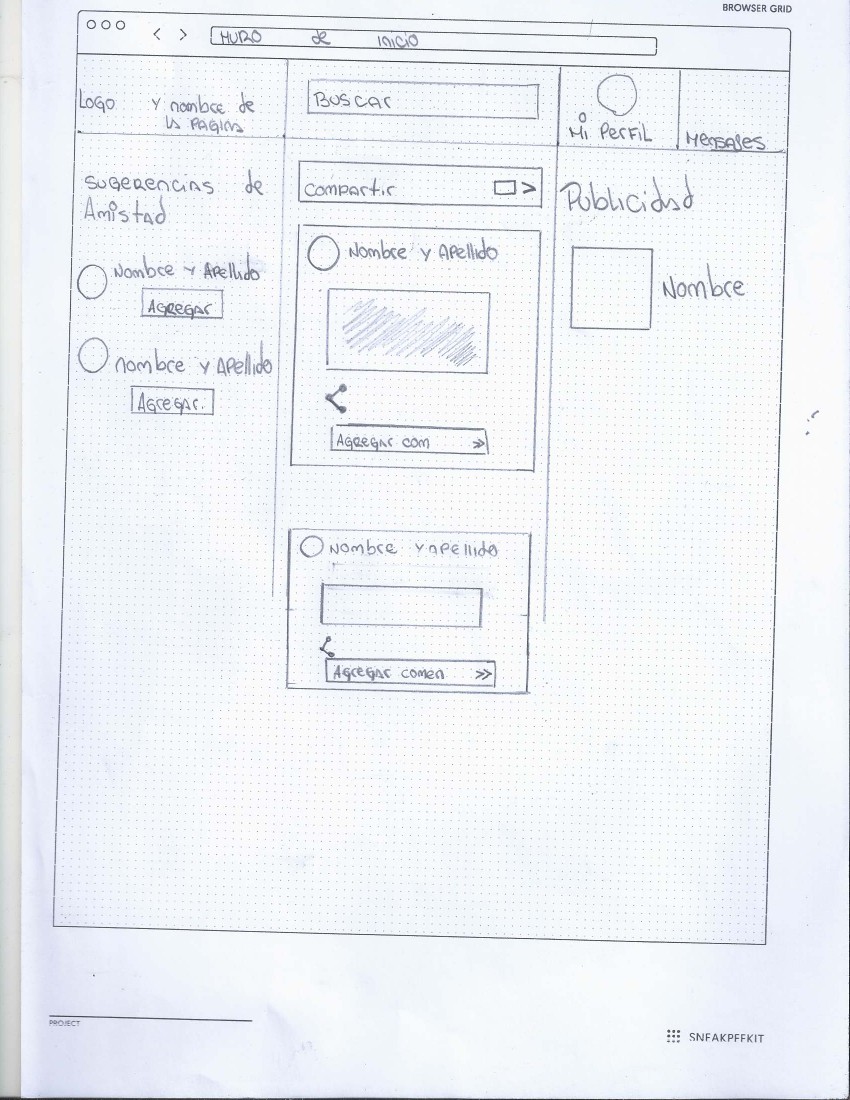 BROWSER GRID
MURO de inicio
Logo y nombre de
la Pagina
Buscar
Mi Perfil
Mensajes
Sugerencias de
Amistad
Nombre y Apellido
Agregar
nombre y Apellido
Agregar.
Compartir
Nombre y Apellido
Agregar com
Nombre y apellido
Agregar comen
Publicidad
Nombre
PROJECT
SNEAKPEEKIT